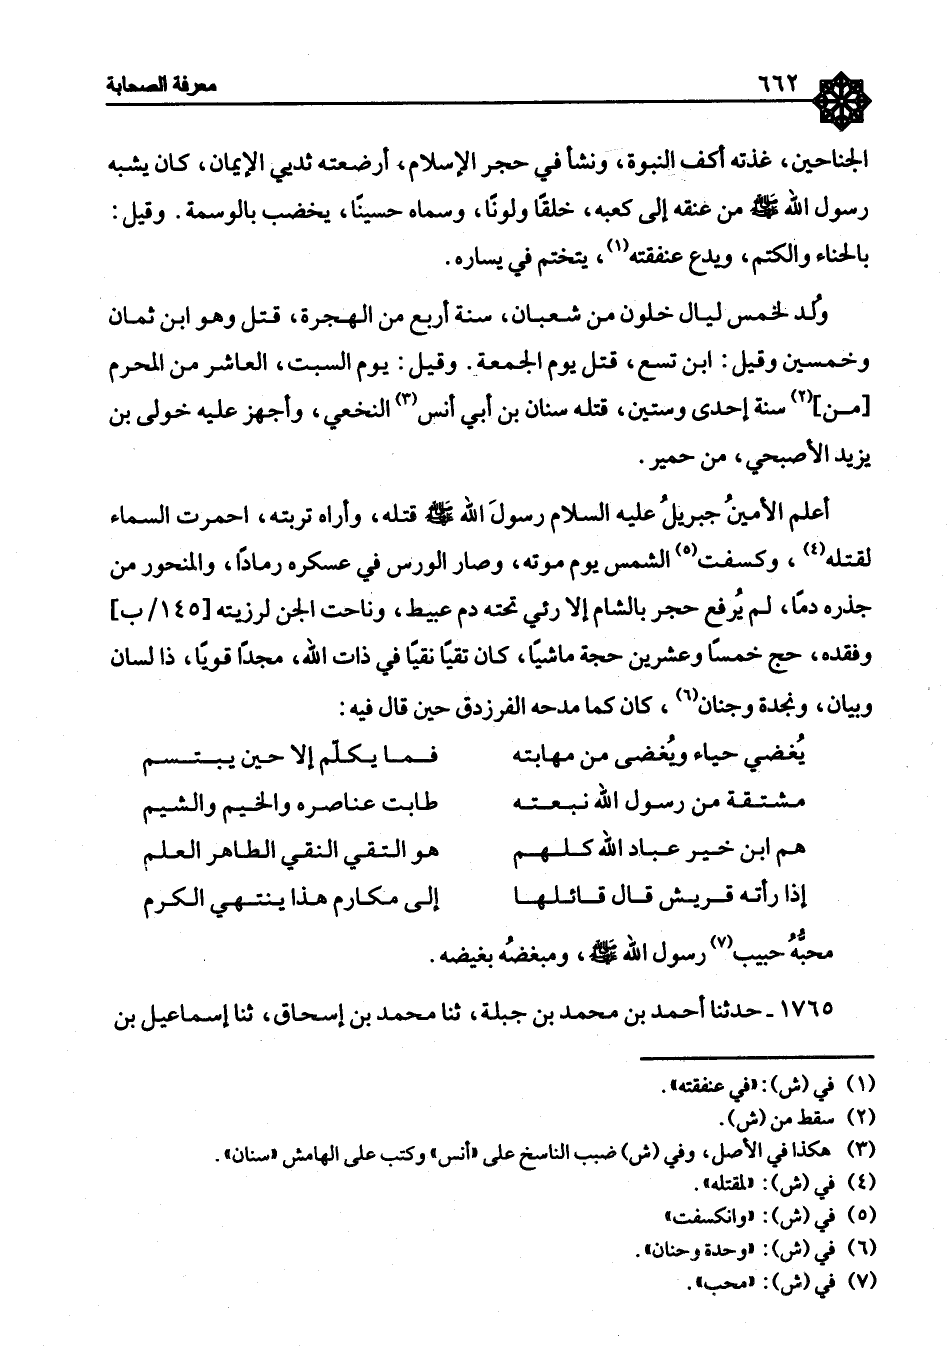 ٦٦٢ معرفة الصحابة
الجناحين، غذته أكف النبوة، ونشأ في حجر الإسلام، أرضعته ثديي الإيمان، كان يشبه
رسول الله ﷺ من عنقه إلى كعبه، خلقًا ولونًا، وسماه حسينًا، يخضب بالوسمة. وقيل:
بالحناء والكتم، ويدع عنفقته(١)، يتختم في يساره.
وُلد لخمس ليال خلون من شعبان، سنة أربع من الهجرة، قتل وهو ابن ثمان
وخمسين وقيل: ابن تسع، قتل يوم الجمعة. وقيل: يوم السبت، العاشر من المحرم
[من](٢) سنة إحدى وستين، قتله سنان بن أبي أنس(٣) النخعي، وأجهز عليه خولى بن
يزيد الأصبحي، من حمير.
أعلم الأمينُ جبريلُ عليه السلام رسولَ الله ﷺ قتله، وأراه تربته، احمرت السماء
لقتله(٤)، وكسفت(٥) الشمس يوم موته، وصار الورس في عسكره رمادًا، والمنحور من
جذره دمًا، لم يُرفع حجر بالشام إلا رئي تحته دم عبيط، وناحت الجن لرزيته [١٤٥/ب]
وفقده، حج خمسًا وعشرين حجة ماشيًا، كان تقيًا نقيًا في ذات الله، مجدًا قويًا، ذا لسان
وبيان، ونجدة وجنان(٦)، كان كما مدحه الفرزدق حين قال فيه:
يُغضي حياء ويُغضى من مهابته فما يكلّم إلا حين يبتسم
مشتقة من رسول الله نبعته طابت عناصره والخيم والشيم
هم ابن خير عباد الله كلهم هو التقي النقي الطاهر العلم
إذا رأته قريش قال قائلها إلى مكارم هذا ينتهي الكرم
محبُّهُ حبيب(٧) رسول الله ﷺ، ومبغضُه بغيضه.
١٧٦٥ ـ حدثنا أحمد بن محمد بن جبلة، ثنا محمد بن إسحاق، ثنا إسماعيل بن
(١) في (ش): «في عنفقته».
(٢) سقط من (ش).
(٣) هكذا في الأصل، وفي (ش) ضبب الناسخ على «أنس» وكتب على الهامش «سنان».
(٤) في (ش): «لمقتله».
(٥) في (ش): «وانكسفت»
(٦) في (ش): «وحدة وحنان».
(٧) في (ش): «محب».